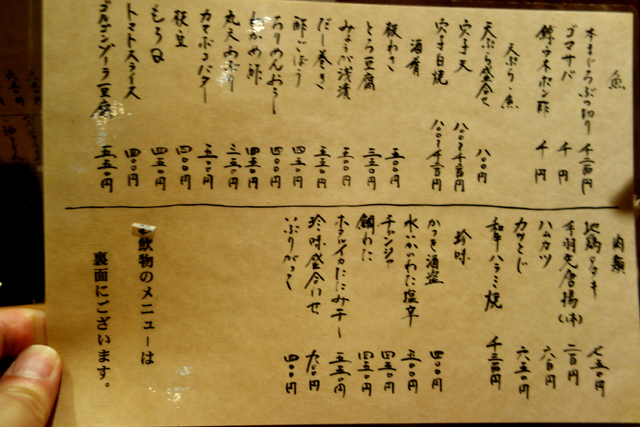 魚
本まぐろぶつ切り 千二百円
ゴマサバ 千円
鱈白子ポン酢 千円
天ぷら・魚
天ぷら盛合せ 八〇〇円
穴子天 八〇〇〜千二百円
穴子白焼 八〇〇〜千二百円
酒肴
板わさ 五五〇円
とろ豆腐 三五〇円
みょうが浅漬 五五〇円
だし巻き 五五〇円
酢ごぼう 四五〇円
じゃこおろし 四〇〇円
もずく酢 四五〇円
丸天あぶり 三五〇円
カマボコバター 五五〇円
枝豆 四〇〇円
もろQ 四五〇円
トマトスライス 四〇〇円
ゴルゴンゾーラ豆腐 五五〇円
肉類
地鶏タタキ 七五〇円
手羽先唐揚(一本) 二百円
ハムカツ 六百円
カツとじ 六五〇円
和牛ハラミ焼 千三百円
珍味
かつを酒盗 四〇〇円
水いかのわた塩辛 五〇〇円
チャンジャ 四五〇円
鯛わた 四五〇円
ホタルイカたたみ干し 五五〇円
珍味盛合わせ 九〇〇円
いぶりがっこ 四〇〇円
飲物のメニューは
裏面にございます。